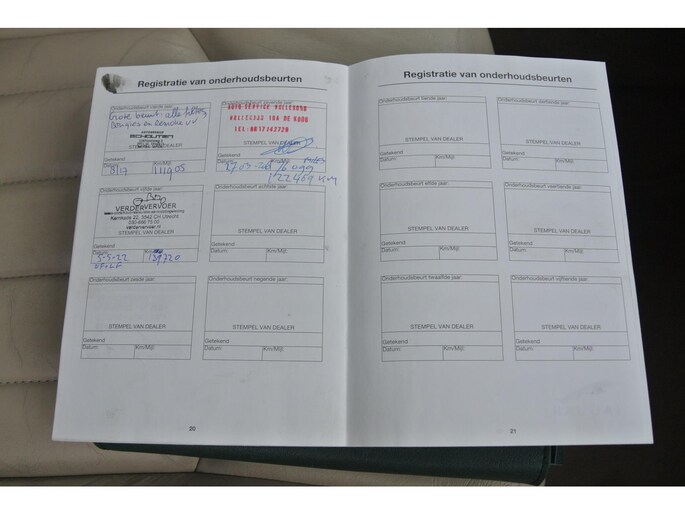 Registratie van onderhoudsbeurten
Onderhoudsbeurt vierde jaar:
Grote beurt - alle filters
bougies en
SCHOUTEN
STEMPEL VAN DEALER
Getekend
Datum: Km/Mijl:
8/17 111905
Onderhoudsbeurt zevende jaar:
AUTO SERVICE
TEL:0612162720
STEMPEL VAN DEALER
Getekend
Datum: Km/Mijl:
122469 km
Onderhoudsbeurt vijfde jaar:
VERDERVERVOER
030-686 75 00
verdervervoer.nl
STEMPEL VAN DEALER
Getekend
Datum: Km/Mijl:
5-5-22 139720
Onderhoudsbeurt achtste jaar:
STEMPEL VAN DEALER
Getekend
Datum: Km/Mijl:
Onderhoudsbeurt zesde jaar:
STEMPEL VAN DEALER
Getekend
Datum: Km/Mijl:
Onderhoudsbeurt negende jaar:
STEMPEL VAN DEALER
Getekend
Datum: Km/Mijl:
20
Registratie van onderhoudsbeurten
Onderhoudsbeurt tiende jaar:
STEMPEL VAN DEALER
Getekend
Datum: Km/Mijl:
Onderhoudsbeurt dertiende jaar:
STEMPEL VAN DEALER
Getekend
Datum: Km/Mijl:
Onderhoudsbeurt elfde jaar:
STEMPEL VAN DEALER
Getekend
Datum: Km/Mijl:
Onderhoudsbeurt veertiende jaar:
STEMPEL VAN DEALER
Getekend
Datum: Km/Mijl:
Onderhoudsbeurt twaalfde jaar:
STEMPEL VAN DEALER
Getekend
Datum: Km/Mijl:
Onderhoudsbeurt vijftiende jaar:
STEMPEL VAN DEALER
Getekend
Datum: Km/Mijl:
21